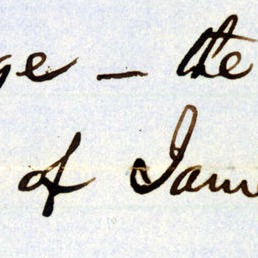 ge — the
of Jam